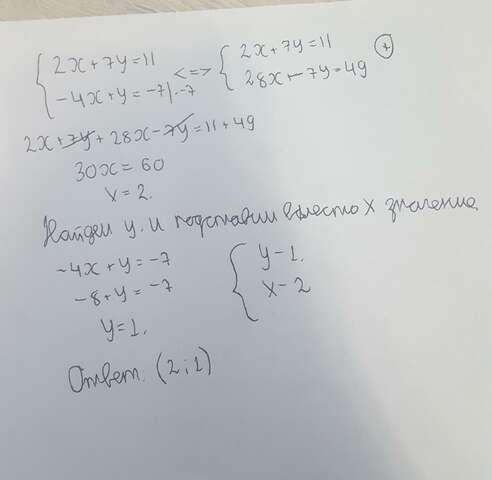 2x+7y=11 <=> 2x+7y=11 (+)
-4x+y=-7|·-7 28x-7y=49
2x+7y+28x-7y=11+49
30x=60
x=2.
Найдем y. и подставим вместо x значение
-4x+y=-7
-8+y=-7
y=1.
y-1.
x-2
Ответ. (2;1)